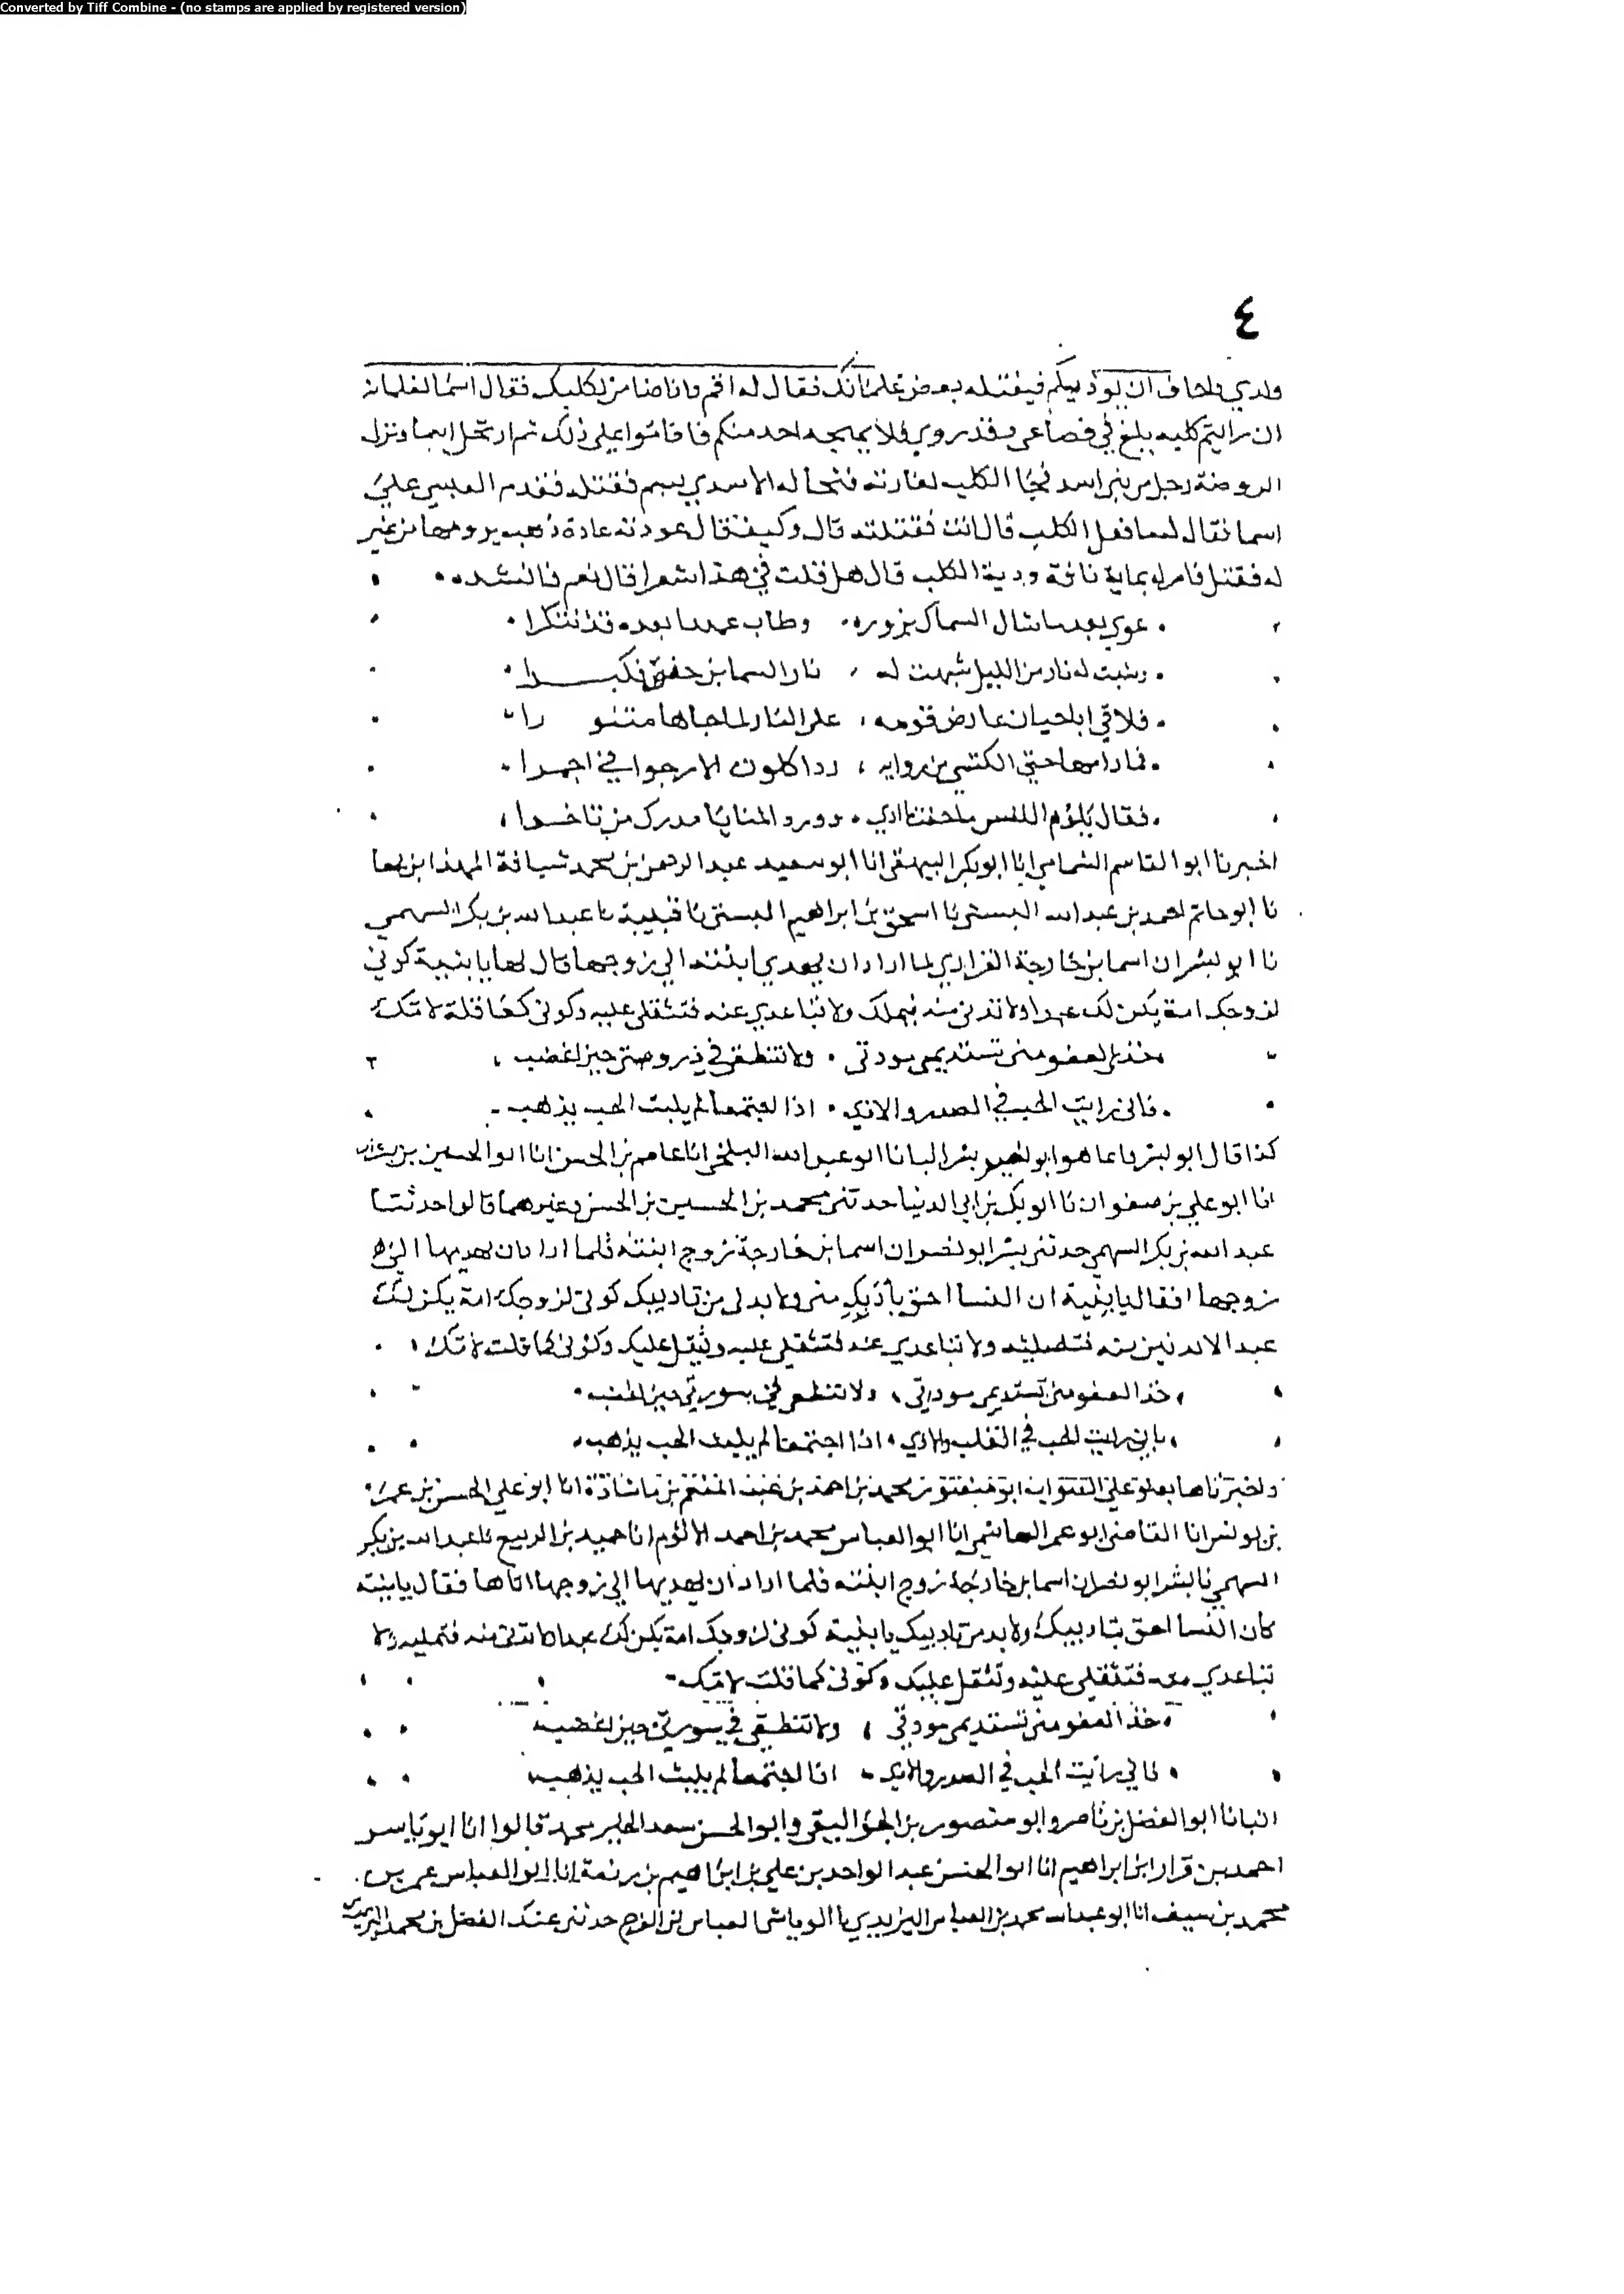 Converted by Tiff Combine - (no stamps are applied by registered version)
٤
ولدي واخاف ان يوذيكم فيقتله بعض غلمانك فقال له اقم وانا ضامن لكلبك فقال اسما لغلمانه
ان رايتم كلبه يلغ في قصاعي وقدروي فلا يهيجه احد منكم فاقاموا على ذلك ثم ارتحل اسما ونزل
الروضة رجل من بني اسد فجا الكلب لعادته فنحا له الاسدي بسهم فقتله فقدم العبسي على
اسما فقال له ما فعل الكلب قال انت قتلته قال وكيف قال عودته عادة ذهب يرومها من غير
له فقتل فامر له بماية ناقة ودية الكلب قال هل قلت في هذا شعرا قال نعم فانشده
عوى بعد ما شال السماك بزوره وطاب عهدا بعده قد تنكرا
وشبت له نار من الليل شبهت له نار اسما بن حفص فكبرا
فلاقى ابا حيان عارض قومه على النار لما جاها متنو را
فما رامها حتى اكتسى من روايه ردا كلون الارجواني احمرا
فقال يلوم النفس ما خفت اذي وورد المنايا مدرك من تاخرا
اخبرنا ابو القاسم الشحامي انا ابو بكر البيهقي انا ابو سعيد عبد الرحمن بن محمد شبانة الهمذاني بها
نا ابو حاتم احمد بن عبد الله البستي نا اسحق بن ابراهيم البستي نا قتيبة نا عبد الله بن بكر السهمي
نا ابو بشر ان اسما بن خارجة الفزاري لما اراد ان يهدي ابنته الى زوجها قال لها يا بنية كوني
لزوجك امة يكن لك عبدا ولا تدني منه فيملك ولا تباعدي عنه فتثقلي عليه وكوني كما قلت لامك
خذي العفو مني تستديمي مودتي ولا تنطقي في حين اغضب
فاني رايت الحب في الصدر والاذى اذا اجتمعا لم يلبث الحب يذهب
كذا قال ابو بشر وانما هو ابو نصر بشر انبانا ابو عبد الله البلخي انا عاصم بن الحسن انا ابو الحسين بن بشران
انا ابو علي بن صفوان نا ابو بكر بن ابي الدنيا حدثني محمد بن الحسين بن الحسن وغيرهما قالوا حدثنا
عبد الله بن بكر السهمي حدثني بشر ابو نصر ان اسما بن خارجة زوج ابنته فلما اراد ان يهديها الى
زوجها فقال يا بنية ان النسا احق بادبك مني ولا بد لي من تاديبك كوني لزوجك امة يكن لك
عبدا لا تدنين منه فتمليه ولا تباعدي عنه فتثقلي عليه ويثقل عليك وكوني كما قلت لامك
خذ العفو مني تستديمي مودتي ولا تنطقي في سورتي حين اغضب
فاني رايت الحب في القلب والاذى اذا اجتمعا لم يلبث الحب يذهب
واخبرتاها بعلو علي محمد بن احمد بن عبد المنعم بن ماشاذة انا ابو علي الحسن بن عمر
بن يونس انا القاضي ابو عمر الهاشمي انا ابو العباس محمد بن احمد الاثرم انا حميد بن الربيع نا عبد الله بن بكر
السهمي نا بشر ابو نصر ان اسما بن خارجة زوج ابنته فلما اراد ان يهديها الى زوجها اتاها فقال يا بنية
كان النسا احق بتاديبك ولا بد من تاديبك يا بنية كوني لزوجك امة يكن لك عبدا ولا تدني منه فتمليه ولا
تباعدي منه فتثقلي عليه وتثقل عليك وكوني كما قلت لامك
خذ العفو مني تستديمي مودتي ولا تنطقي في سورتي حين اغضب
فاني رايت الحب في الصدر والاذى اذا اجتمعا لم يلبث الحب يذهب
انبانا ابو الفضل بن ناصر وابو منصور بن وابو الحسن سعد الخير بن محمد قالوا انا ابو ياسر
احمد بن ابن ابراهيم انا ابو الحسن عبد الواحد بن علي بن ابراهيم بن انا ابو العباس عمر بن
محمد بن سيف انا ابو عبد الله محمد بن العباس اليزيدي نا الرياشي العباس بن الفرج حدثني عنك الفضل بن محمد اليزيدي